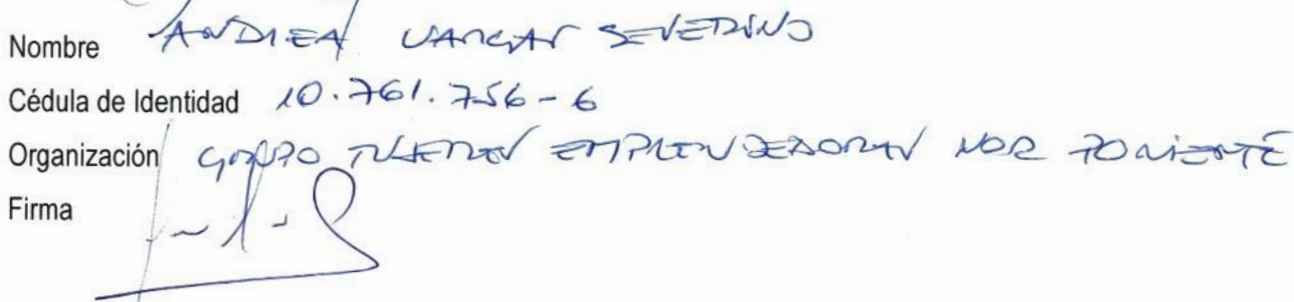 Nombre ANDREA VARGAS SEVERINO
Cédula de Identidad 10.761.756-6
Organización GRUPO EMPRENDEDORAS NOR PONIENTE
Firma